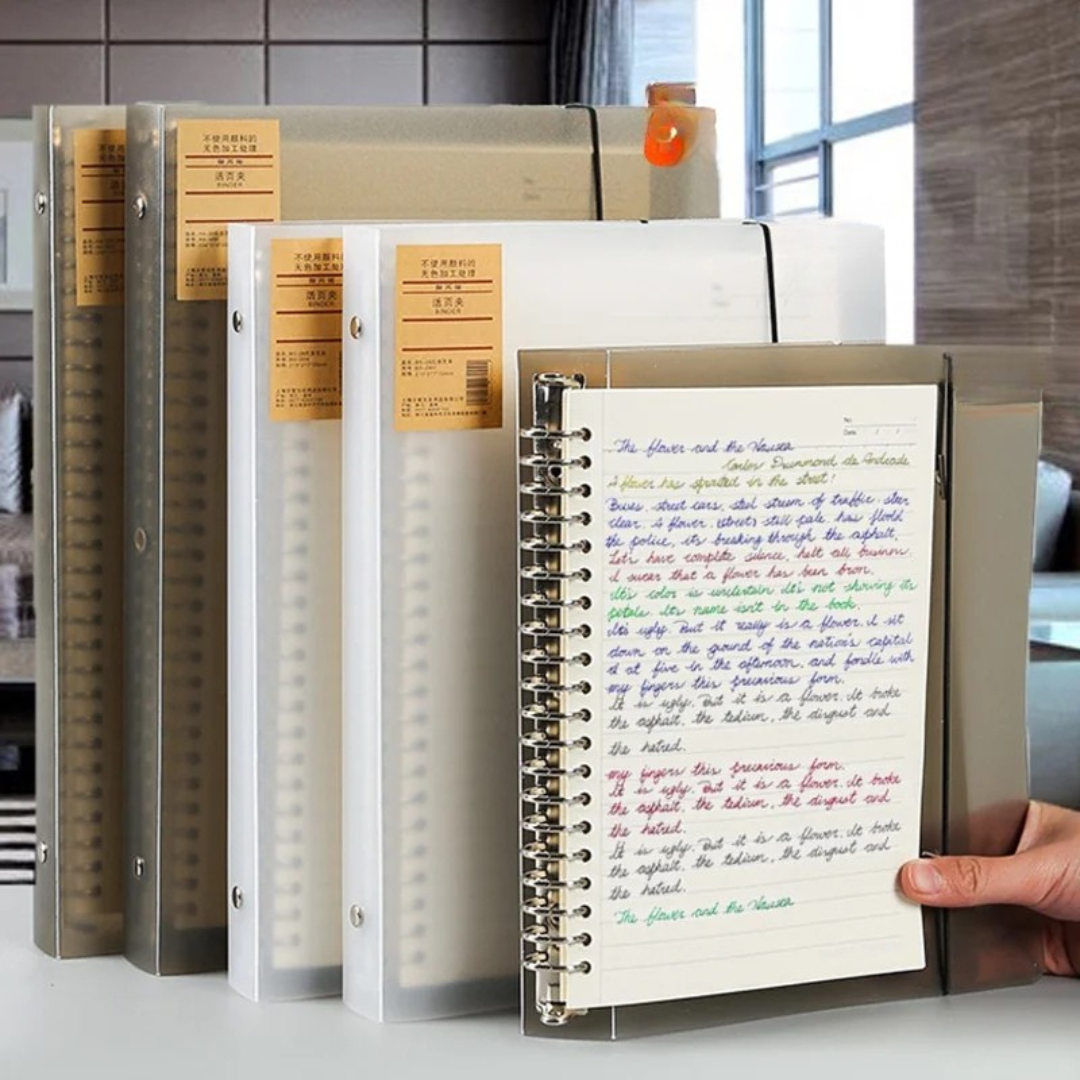 不使用颜料的
无色加工处理
活页夹
BINDER
不使用颜料的
无色加工处理
活页夹
BINDER
不使用颜料的
无色加工处理
活页夹
BINDER
No.
Date
The flower and the Nausea
Carlos Drummond de Andrade
A flower has sprouted in the street!
Buses, street cars, steel stream of traffic. steer
clear. A flower. street still pale, has
the police, its breaking through the asphalt.
Let's have complete silence, halt all business.
I swear that a flower has been bron.
It's color is uncertain. It's not showing its
petals. Its name isn't in the book.
It's ugly. But it really is a flower. I sit
down on the ground of the nation's capital
d at five in the afternoon, and fondle with
my fingers this precavious form.
It is ugly. But it is a flower. It broke
the asphalt, the tedium, the disgust and
the hatred.
my fingers this precavious form.
It is ugly. But it is a flower. It broke
the asphalt, the tedium, the disgust and
the hatred.
It is ugly. But it is a flower. It broke
the asphalt, the tedium, the disgust and
the hatred.
The flower and the Nausea